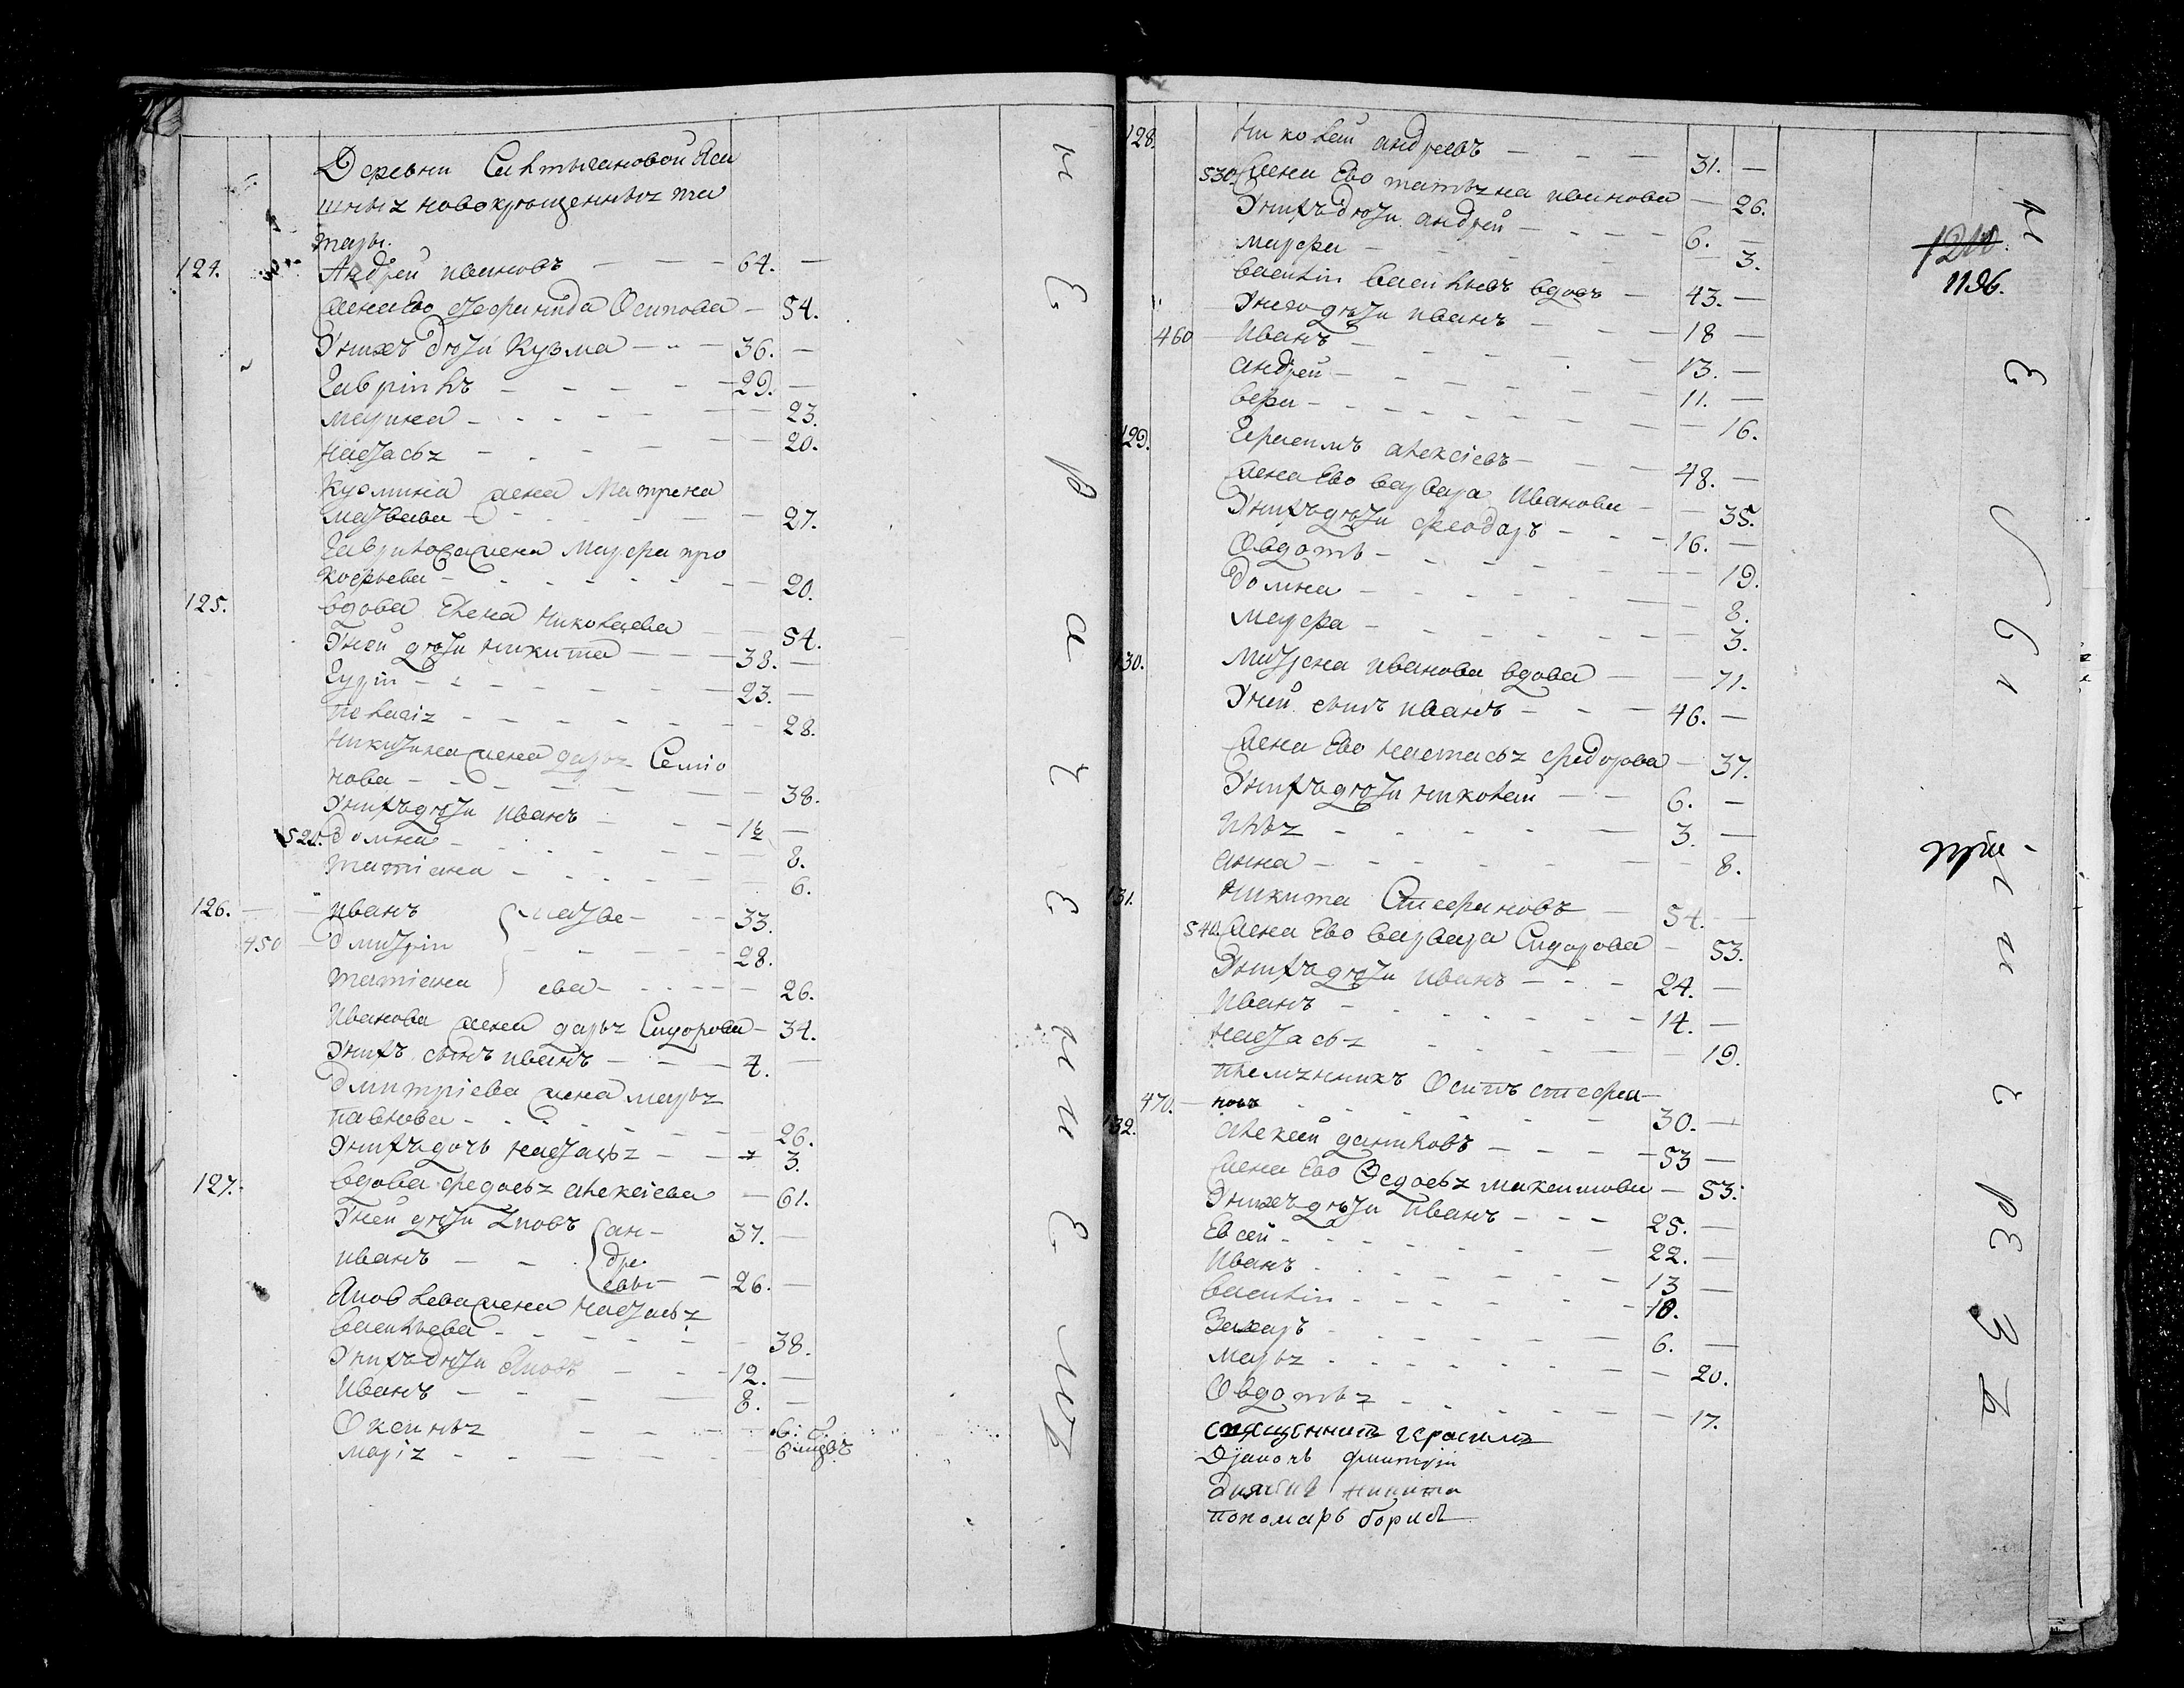 Деревни Салтыгановой Яса
шныя новокрещенныя та
тары.
124. Андрей ивановъ — — — 64. —
жена Ево Осипова — 54.
Унихъ дѣти Кузма — — 36. —
Гаврілъ — — — 29. —
марина — — — 23.
настасья — — — 20.
Кузмина жена Матрена
матвѣева — — — 27.
Гаврилова жена Марфа про
кофьева — — — 20.
125. вдова Елена Николаева — — 54.
Уней дѣти никита — — — 38. —
Гурін — — — 23. —
пелагія — — — 28.
Никитина жена дарья Семіо
нова — — — 38.
Унихъ дѣти иванъ — — —
520. домна — — — 8.
татіана — — — 6.
126. иванъ матве — 33.
450 дмитріи — — — 28.
татіана ева — — — 26.
Иванова жена дарья Сидорова — 34.
Унихъ сынъ иванъ — — 7. —
дмитріева жена марья
павлова — — — 26.
Унихъ дочь настасья — — 3.
127. вдова федосья алексіева — 61.
Уней дѣти Яковъ ан- 37. —
иванъ — — дре-
евы — 26. —
Яковлева жена настасья
васильева — — — 38.
Унихъ дѣти — — 12. —
Иванъ — — — 8. —
Оксинья — — — 6:
марія — — — 6
128. николай андреевъ — — — 31. —
530. жена Ево татьяна иванова — 26.
Унихъ дѣти андрей — — — 6. —
марфа — — — 3.
василіи васильевъ вдовъ — 43. —
Унего дѣти иванъ — — — 18 —
460 — Иванъ — — — 13. —
андрей — — — 11. —
вера — — — 16.
129. Герасимъ алексіевъ — — — 48. —
жена Ево варвара Иванова — — 35.
Унихъ дѣти феодоръ — — — 16. —
Овдотья — — — 19.
домна — — — 8.
марфа — — — 3.
130. матрена иванова вдова — — 71.
Уней сынъ иванъ — — — 46. —
жена Ево настасья федорова — 37.
Унихъ дѣти николай — — 6. —
Илья — — — 3. —
анна — — — 8.
131. никита Стефановъ — 54. —
540. жена Ево варвара Сидорова — 53.
Унихъ дѣти иванъ — — — 24. —
Иванъ — — — 14. —
настасья — — — 19.
племянникъ Осипъ стефа—
470. — новъ — — — 30. —
132. алексей даниловъ — — — 53 —
жена Ево Федосья максимова — 53.
Унихъ дѣти иванъ — — — 25. —
Евсей — — — 22. —
Иванъ — — — 13 —
василіи — — — 10.
Захаръ — — — 6. —
марья — — — 20.
Овдотья — — — 17.
священникъ герасимъ
Дьяконъ дмитріи
дьячекъ никита
пономарь борисъ
1196.